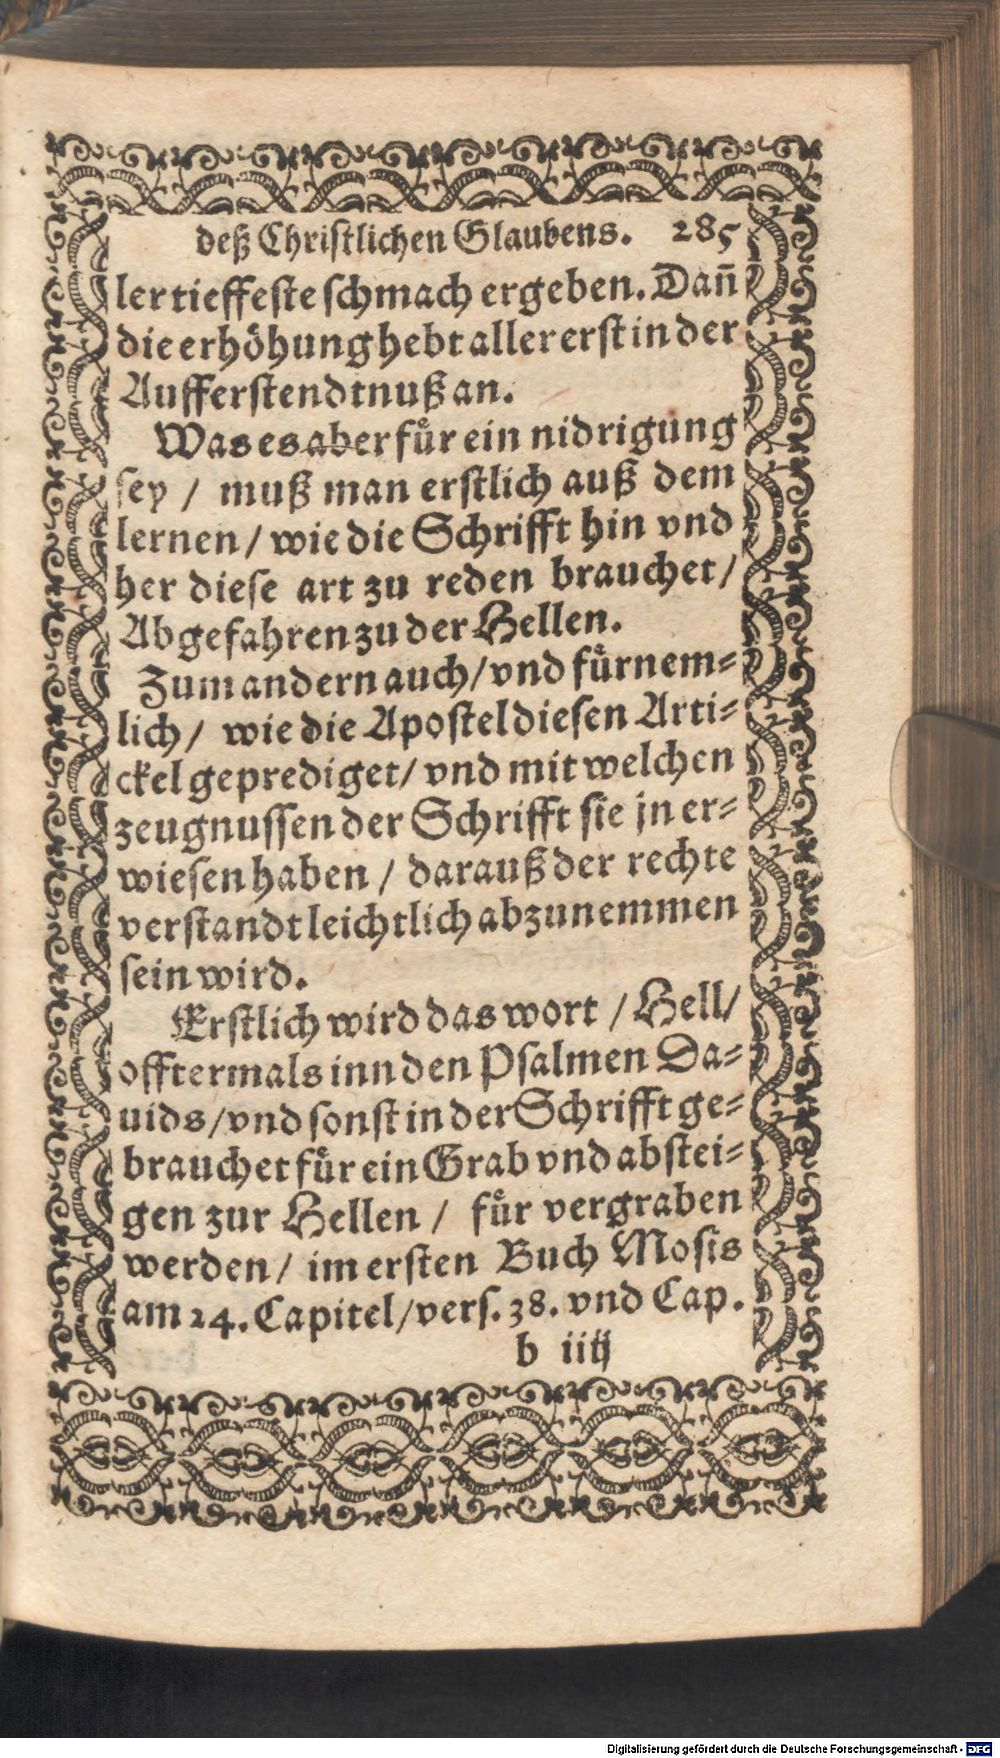 deß Christlichen Glaubens. 285
ler tieffeste schmach ergeben. Dañ
die erhöhung hebt allererst in der
Aufferstendtnuß an.
Was es aber fuͤr ein nidrigung
sey / muß man erstlich auß dem
lernen / wie die Schrifft hin vnd
her diese art zu reden brauchet /
Abgefahren zu der Hellen.
Zum andern auch / vnd fuͤrnem⸗
lich / wie die Apostel diesen Arti⸗
ckel geprediget / vnd mit welchen
zeugnussen der Schrifft sie jn er⸗
wiesen haben / darauß der rechte
verstandt leichtlich abzunemmen
sein wird.
Erstlich wird das wort / Hell /
offtermals inn den Psalmen Da⸗
uids / vnd sonst in der Schrifft ge⸗
brauchet fuͤr ein Grab vnd abstei⸗
gen zur Hellen / fuͤr vergraben
werden / im ersten Buch Mosis
am 24. Capitel / vers. 38. vnd Cap.
b iiij
Digitalisierung gefördert durch die Deutsche Forschungsgemeinschaft - DFG